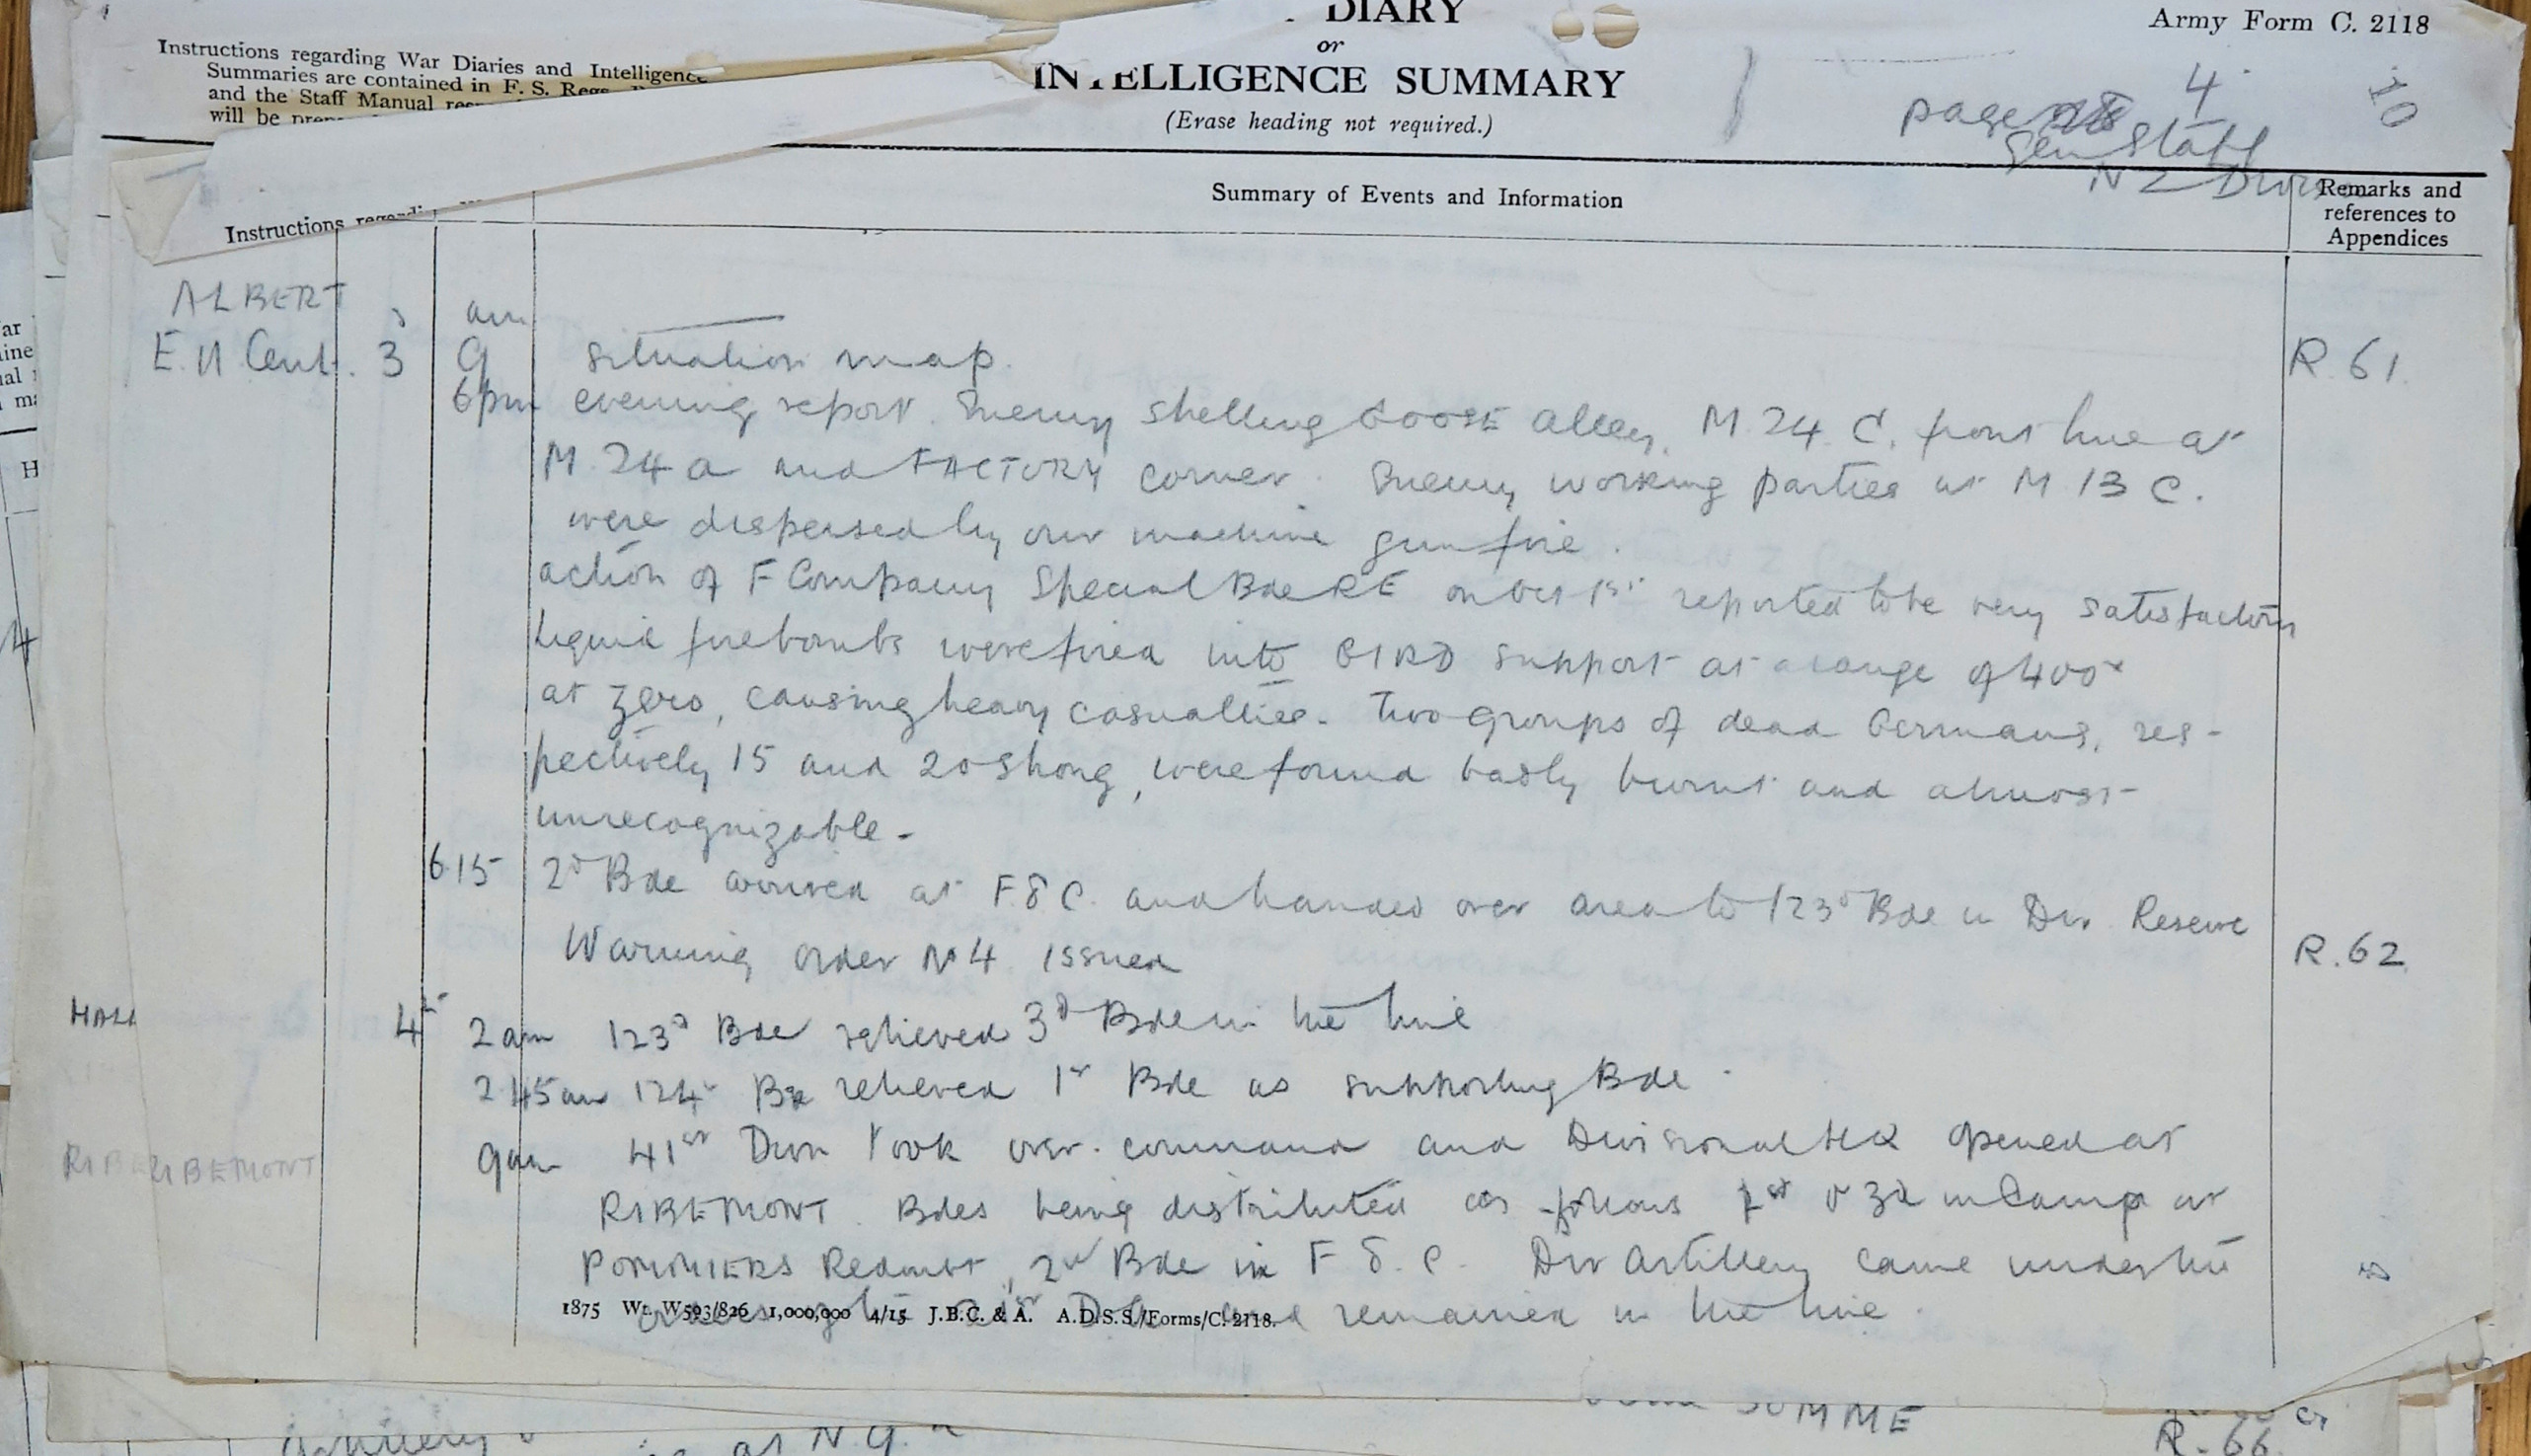 DIARY
Army Form C. 2118
or
INTELLIGENCE SUMMARY
(Erase heading not required.)
Instructions regarding War Diaries and Intelligence
Summaries are contained in F. S. Regs.
and the Staff Manual
will be
page 4
10
Gen Staff
NZ Divn
Instructions
Summary of Events and Information
Remarks and
references to
Appendices
ALBERT
am
E 11 Cent. 3 9 situation map. R. 61
6pm evening report. Enemy shelling GOOSE alley, M 24 C. front line at
M. 24 a and FACTORY corner. Enemy working parties at M 13 C.
were dispersed by our machine gun fire.
action of F Company Special Bde RE on Oct 1st reported to be very satisfactory
Liquid fire bombs were fired into BIRD support at a range of 400x
at zero, causing heavy casualties. Two groups of dead Germans, res-
pectively 15 and 20 strong, were found badly burnt and almost
unrecognizable.
6.15 2d Bde arrived at F 8 C. and handed over area to 123d Bde in Div Reserve
Warning order No 4 issued R. 62
4th 2am 123d Bde relieved 3d Bde in the line
2 45am 124 Bde relieved 1st Bde as supporting Bde.
9am 41st Divn took over command and Divisional HQ opened at
RIBEMONT
RIBEMONT. Bdes being distributed as follows 1st & 3d in Camp at
POMMIERS Redoubt, 2d Bde in F 8. C. Div Artillery came under the
1875 Wt. W593/826 1,000,000 4/15 J.B.C. & A. A.D.S.S./Forms/C. 2118.
and remained in the line.
SOMME
R. 66